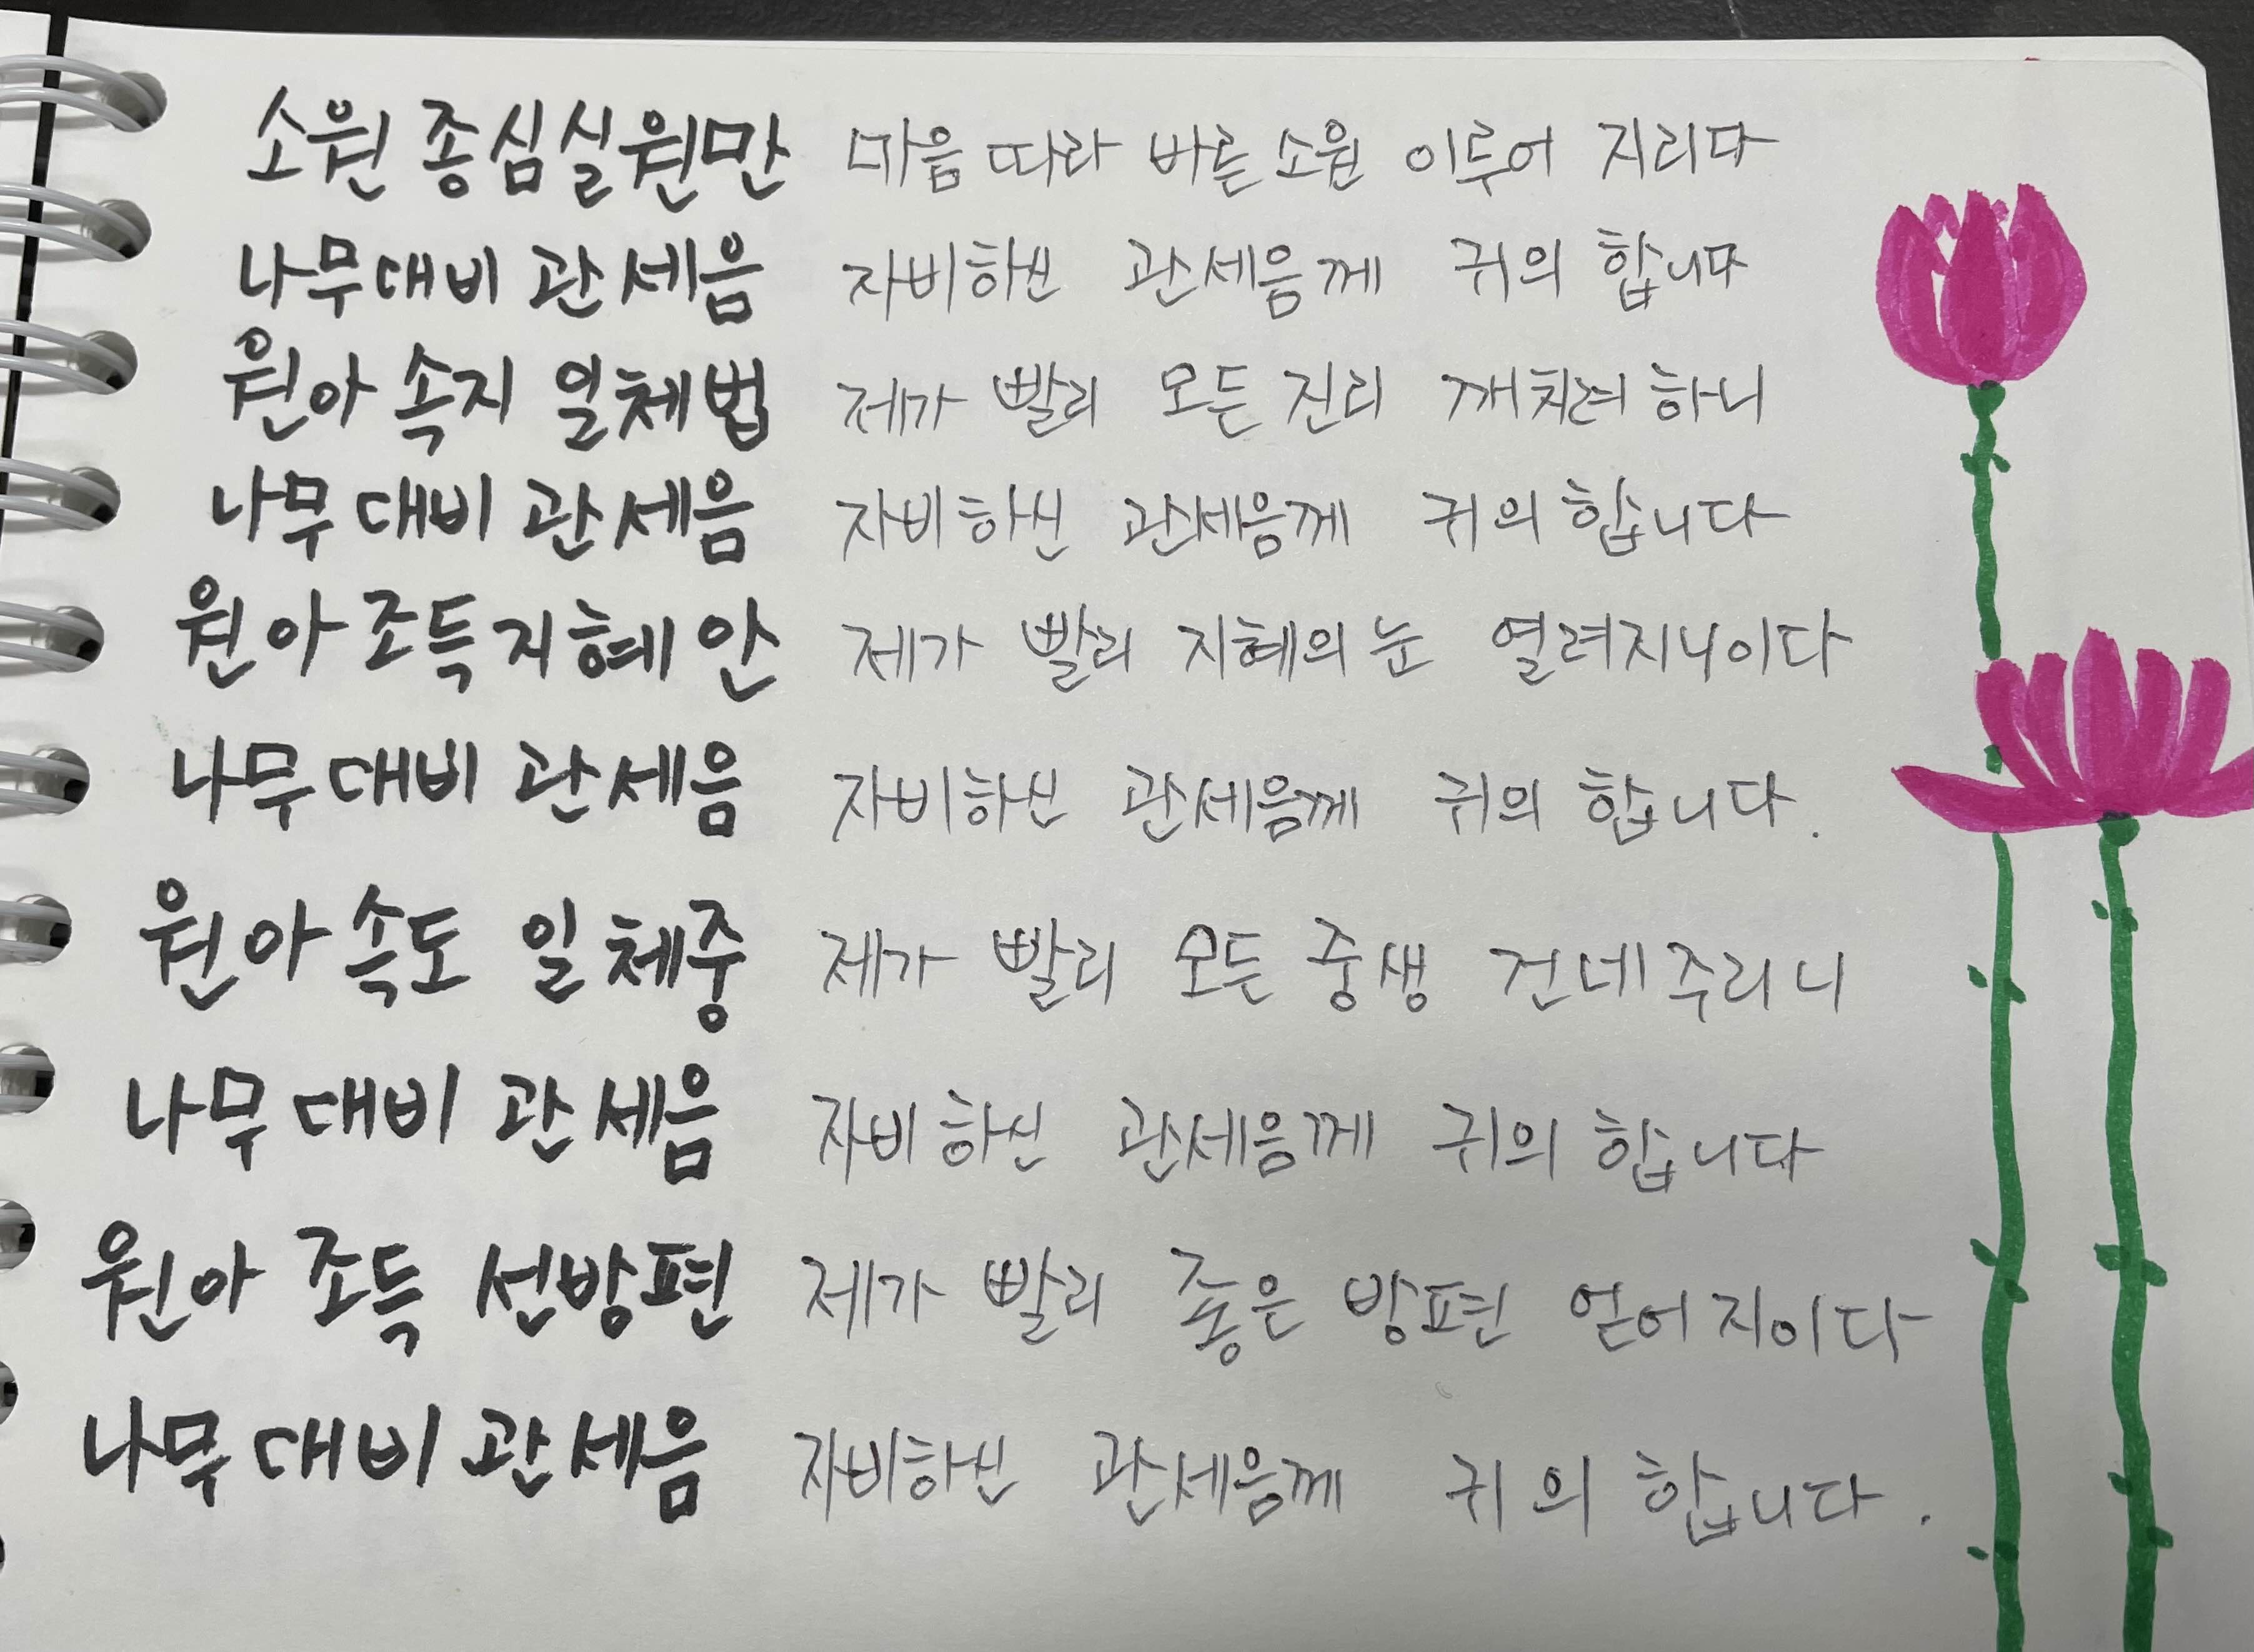 소원 종심실원만 마음 따라 바른 소원 이루어 지리다
나무대비 관세음 자비하신 관세음께 귀의 합니다
원아 속지 일체법 제가 빨리 모든 진리 깨치려 하니
나무 대비 관세음 자비하신 관세음께 귀의 합니다
원아 조득지혜안 제가 빨리 지혜의 눈 열려지니이다
나무대비 관세음 자비하신 관세음께 귀의 합니다.
원아 속도 일체중 제가 빨리 모든 중생 건네주리니
나무 대비 관세음 자비하신 관세음께 귀의 합니다
원아 조득 선방편 제가 빨리 좋은 방편 얻어지이다
나무 대비 관세음 자비하신 관세음께 귀의 합니다.